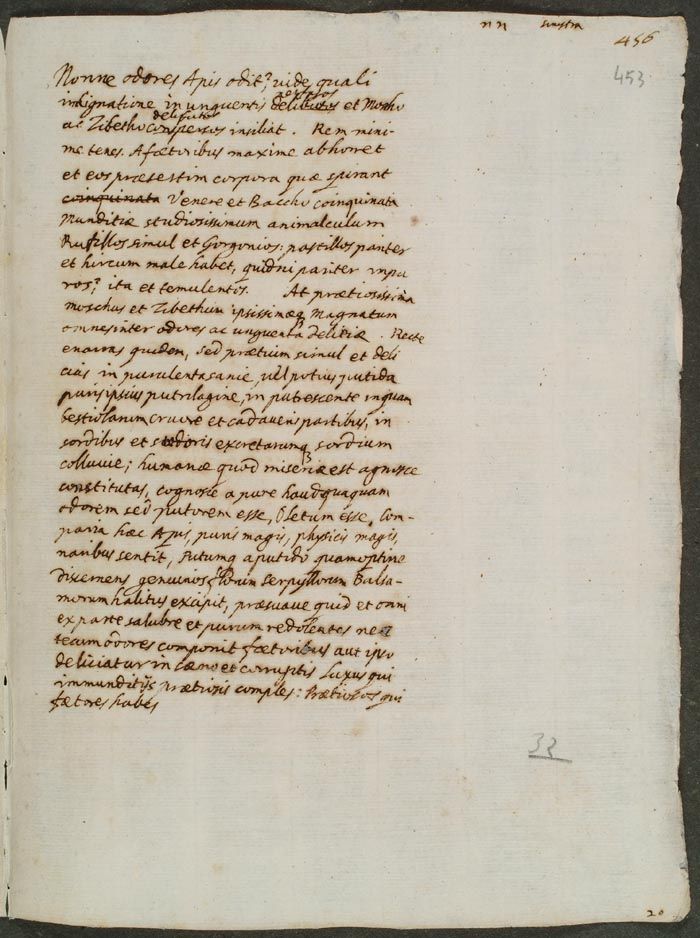 nn sinistra
456
453
Nonne odores Apis odit? vide quali
indignatione in unguentis delibutos et Moscho
delibutos
ac Zibetho conspersos insiliat. Rem mini-
me tenes. A fœtoribus maxime abhorret
et eos præsertim corpora quæ spirant
coinquinata Venere et Baccho coinquinata
Munditiæ studiosissimum animalculum
Rufillos simul et Gorgonios: pastillos pariter
et hircum male habet, quidni pariter impu
ros? ita et temulentos. At prætiosissima
moschus et Zibethum ipsissimæq Magnatum
omnes inter odores ac unguenta deliciæ. Recte
enarras quidem, sed prætium simul et deli
cias in purulenta sanie, vel potius putida
puris ipsius putrilagine, in putrescente inquam
bestiolarum cruore et cadaveris partibus, in
sordibus et sudoris excretarumq sordium
colluvie; humanæ quod miseriæ est agnosce
constitutas, cognosce a pure haudquaquam
odorem sed putorem esse, Oletum esse. Com-
paria hæc Apis, puris magis, physicis magis,
naribus sentit, putumq a putido quam optime
discernens genuinos florum serpyllorum Balsa-
morum halitus excipit, præsuave quid et omni
ex parte salubre et purum redolentes nec
tecum odores componit fœtoribus aut ipso
deliciatur in cœno et corruptis Luxus qui
immunditijs prætiosis comples: Prætiosos qui
fœtores habes
33
20